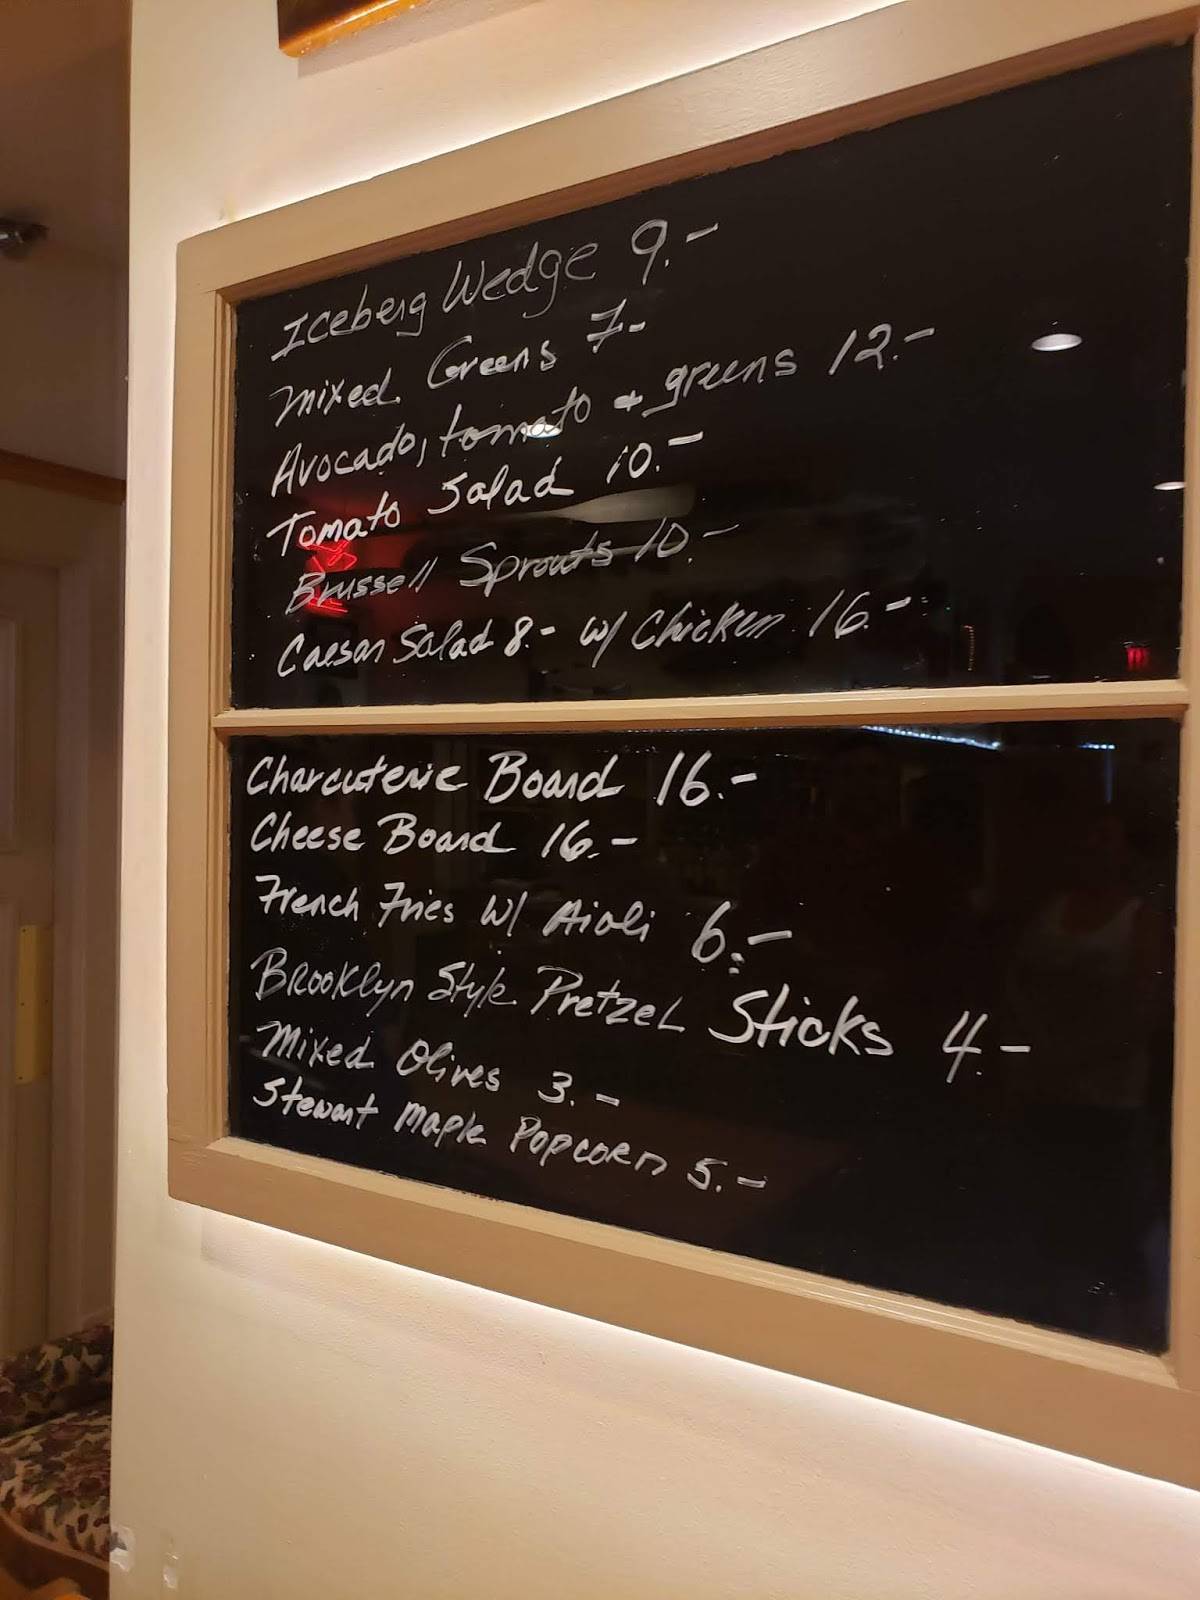 Iceberg Wedge 9.-
Mixed Greens 7-
Avocado, tomato + greens 12.-
Tomato Salad 10.-
Brussell Sprouts 10.-
Caesar Salad 8.- w/ Chicken 16.-
Charcuterie Board 16.-
Cheese Board 16.-
French Fries w/ Aioli 6.-
Brooklyn Style Pretzel Sticks 4.-
Mixed Olives 3.-
Stewart Maple Popcorn 5.-